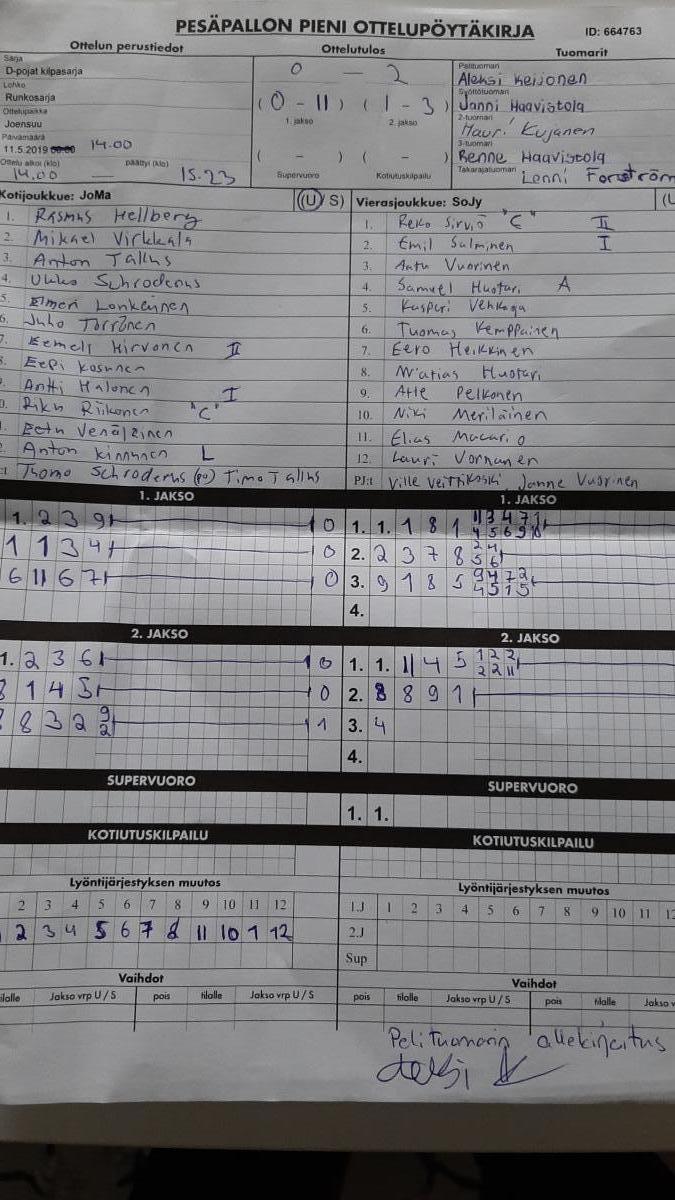 PESÄPALLON PIENI OTTELUPÖYTÄKIRJA
ID: 664763
Ottelun perustiedot
Sarja
D-pojat kilpasarja
Lohko
Runkosarja
Ottelupaikka
Joensuu
Päivämäärä
11.5.2019 14.00
Ottelu alkoi (klo) päättyi (klo)
14.00 — 15.23
Ottelutulos
0 — 2
(0 - 11) (1 - 3)
1. jakso 2. jakso
( - ) ( - )
Supervuoro Kotiutuskilpailu
Tuomarit
Pelituomari
Aleksi Keijonen
Syöttötuomari
Janni Haavistola
2-tuomari
Kujanen
3-tuomari
Benne Haavistola
Takarajatuomari
Lenni
Kotijoukkue: JoMa (U/S)
1. Rasmus Hellberg
2. Mikael Virkkala
3. Anton Tallus
4. Ukko Schroderus
5. Elmeri Lonkainen
6. Juho Torrönen
7. Eemeli Hirvonen II
8. Eepi Kosunen
9. Antti Halonen I
10. Riku Riikonen "C"
Eetu Venäläinen
Anton Kinnunen L
Schroderus (PJ) Timo Tallus
Vierasjoukkue: SoJy (U
1. Reko Sirviö "C" II
2. Emil Salminen I
3. Aatu Vuorinen
4. Samuel Huotari A
5. Kasperi
6. Tuomas Kemppainen
7. Eero Heikkinen
8. Matias Huotari
9. Atte Pelkonen
10. Niki Meriläinen
11. Elias Macario
12. Lauri Vornanen
PJ:t Ville Janne Vuorinen
1. JAKSO
1. 2 3 9 0
1 1 3 4 0
6 11 6 7 0
1. JAKSO
1. 1. 1 8 1 11 3 4 7 1
4 5 6 9 10
2. 2 3 7 8 2 4
5 6
3. 9 1 8 5 9 4 7 2
4 5 1 5
4.
2. JAKSO
1. 2 3 6 0
8 1 4 5 0
8 3 2 9 1
2
2. JAKSO
1. 1. 11 4 5 1 2 2
2 2 11
2. 8 8 9 1
3. 4
4.
SUPERVUORO
SUPERVUORO
1. 1.
KOTIUTUSKILPAILU
KOTIUTUSKILPAILU
Lyöntijärjestyksen muutos
2 3 4 5 6 7 8 9 10 11 12
2 3 4 5 6 7 8 11 10 1 12
Lyöntijärjestyksen muutos
1.J 1 2 3 4 5 6 7 8 9 10 11 12
2.J
Sup
Vaihdot
tilalle Jakso vrp U / S pois tilalle Jakso vrp U / S
Vaihdot
pois tilalle Jakso vrp U / S pois tilalle Jakso v
Pelituomarin allekirjoitus